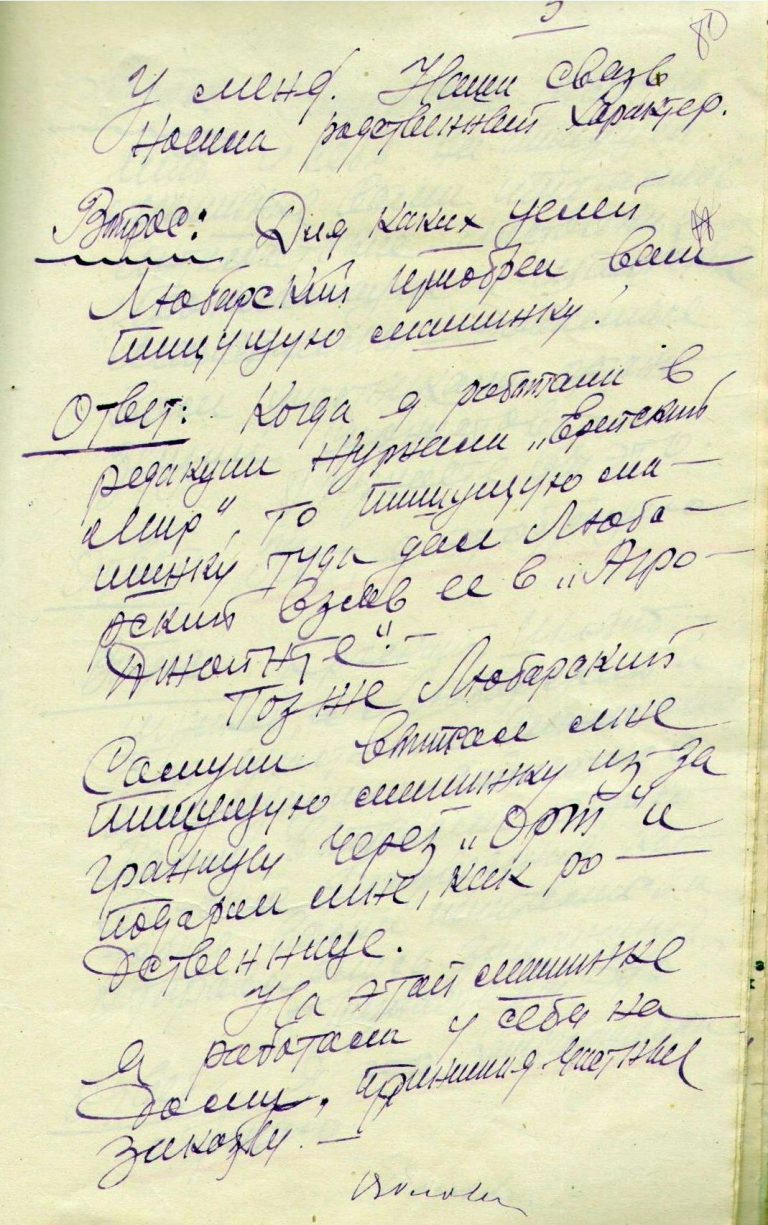 5
80
у меня. Наши связь
носила родственный характер.
Вопрос: Для каких целей
Любарский приобрел вам
пишущую машинку?
Ответ: Когда я работала в
редакции журнала „Еврейский
Мир", то пишущую ма-
шинку туда дал Люба-
рский взяв ее в „Агро-
Джойнте".-
Позже Любарский
Самуил выписал мне
пишущую машинку из-за
границы через „Орт" и
подарил мне, как ро-
дственнице.
На этой машинке
я работала у себя на
дому, принимая частные
заказы. —